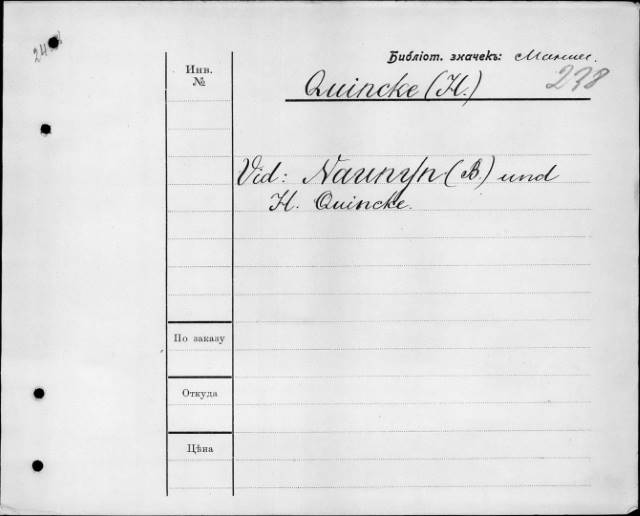 Библіот. значекъ:
238
Инв.
№
Quincke (H.)
Vid: Naunyn (B.) und
H. Quincke.
По заказу
Откуда
Цѣна